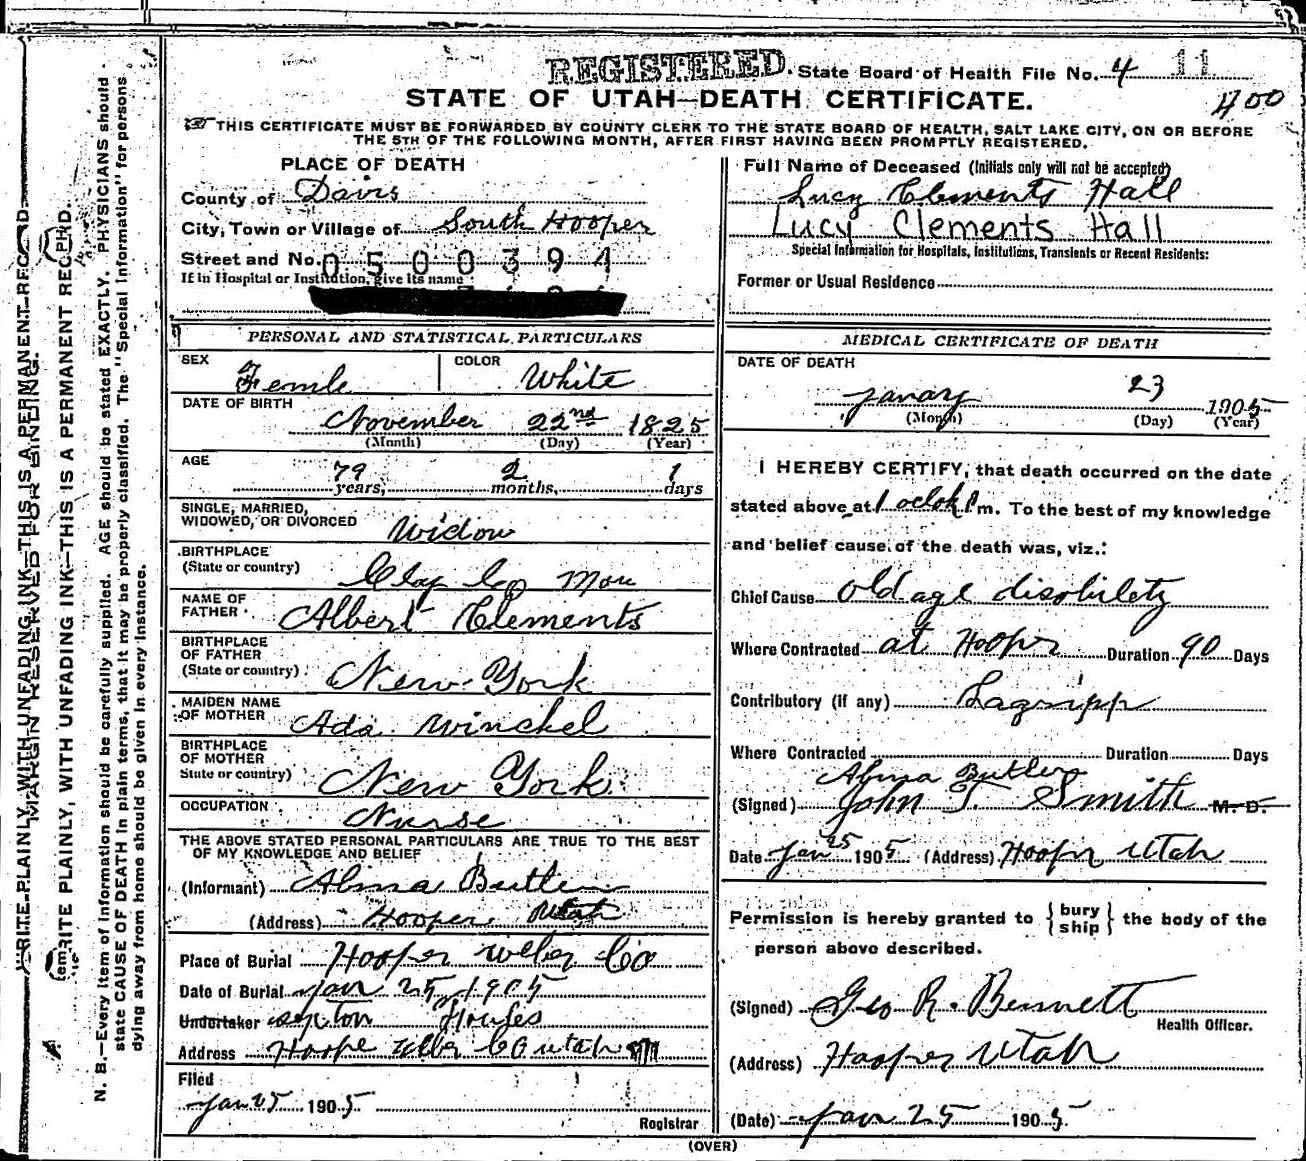 REGISTERED. State Board of Health File No. 4 11
STATE OF UTAH—DEATH CERTIFICATE.
400
THIS CERTIFICATE MUST BE FORWARDED BY COUNTY CLERK TO THE STATE BOARD OF HEALTH, SALT LAKE CITY, ON OR BEFORE
THE 5TH OF THE FOLLOWING MONTH, AFTER FIRST HAVING BEEN PROMPTLY REGISTERED.
PLACE OF DEATH
County of Davis
City, Town or Village of South Hooper
Street and No. 0500394
If in Hospital or Institution, give its name
PERSONAL AND STATISTICAL PARTICULARS
SEX Femle COLOR White
DATE OF BIRTH
November 22nd 1825
(Month) (Day) (Year)
AGE
79 years, 2 months, 1 days
SINGLE, MARRIED,
WIDOWED, OR DIVORCED Widow
BIRTHPLACE
(State or country) Clay Co Mou
NAME OF
FATHER Albert Clements
BIRTHPLACE
OF FATHER
(State or country) New York
MAIDEN NAME
OF MOTHER Ada Winchel
BIRTHPLACE
OF MOTHER
State or country) New York
OCCUPATION
Nurse
THE ABOVE STATED PERSONAL PARTICULARS ARE TRUE TO THE BEST
OF MY KNOWLEDGE AND BELIEF
(Informant) Alma Butler
(Address) Hooper Utah
Place of Burial Hooper Weber Co
Date of Burial Jan 25, 1905
Undertaker sexton
Address Hoope Weber CO Utah
Filed
Jan 25 1905
Registrar
Full Name of Deceased (Initials only will not be accepted)
Lucy Clements Hall
Lucy Clements Hall
Special Information for Hospitals, Institutions, Transients or Recent Residents:
Former or Usual Residence
MEDICAL CERTIFICATE OF DEATH
DATE OF DEATH
Janary 23 1905
(Month) (Day) (Year)
I HEREBY CERTIFY, that death occurred on the date
stated above at 1 oclok P m. To the best of my knowledge
and belief cause of the death was, viz.:
Chief Cause old age disobility
Where Contracted at Hooper Duration 90 Days
Contributory (if any) Lagripp
Where Contracted Duration Days
Alma Butler
(Signed) John T. Smith M. D.
Date Jan 25 1905 (Address) Hoopr Utah
Permission is hereby granted to { bury ship } the body of the
person above described.
(Signed) Geo R. Bennett
Health Officer.
(Address) Hooper Utah
(Date) Jan 25 1905
(OVER)
MARGIN RESERVED FOR BINDING.
WRITE PLAINLY, WITH UNFADING INK—THIS IS A PERMANENT RECORD.
WRITE PLAINLY, WITH UNFADING INK—THIS IS A PERMANENT RECORD.
N. B.—Every item of information should be carefully supplied. AGE should be stated EXACTLY. PHYSICIANS should
state CAUSE OF DEATH in plain terms, that it may be properly classified. The "Special Information" for persons
dying away from home should be given in every instance.